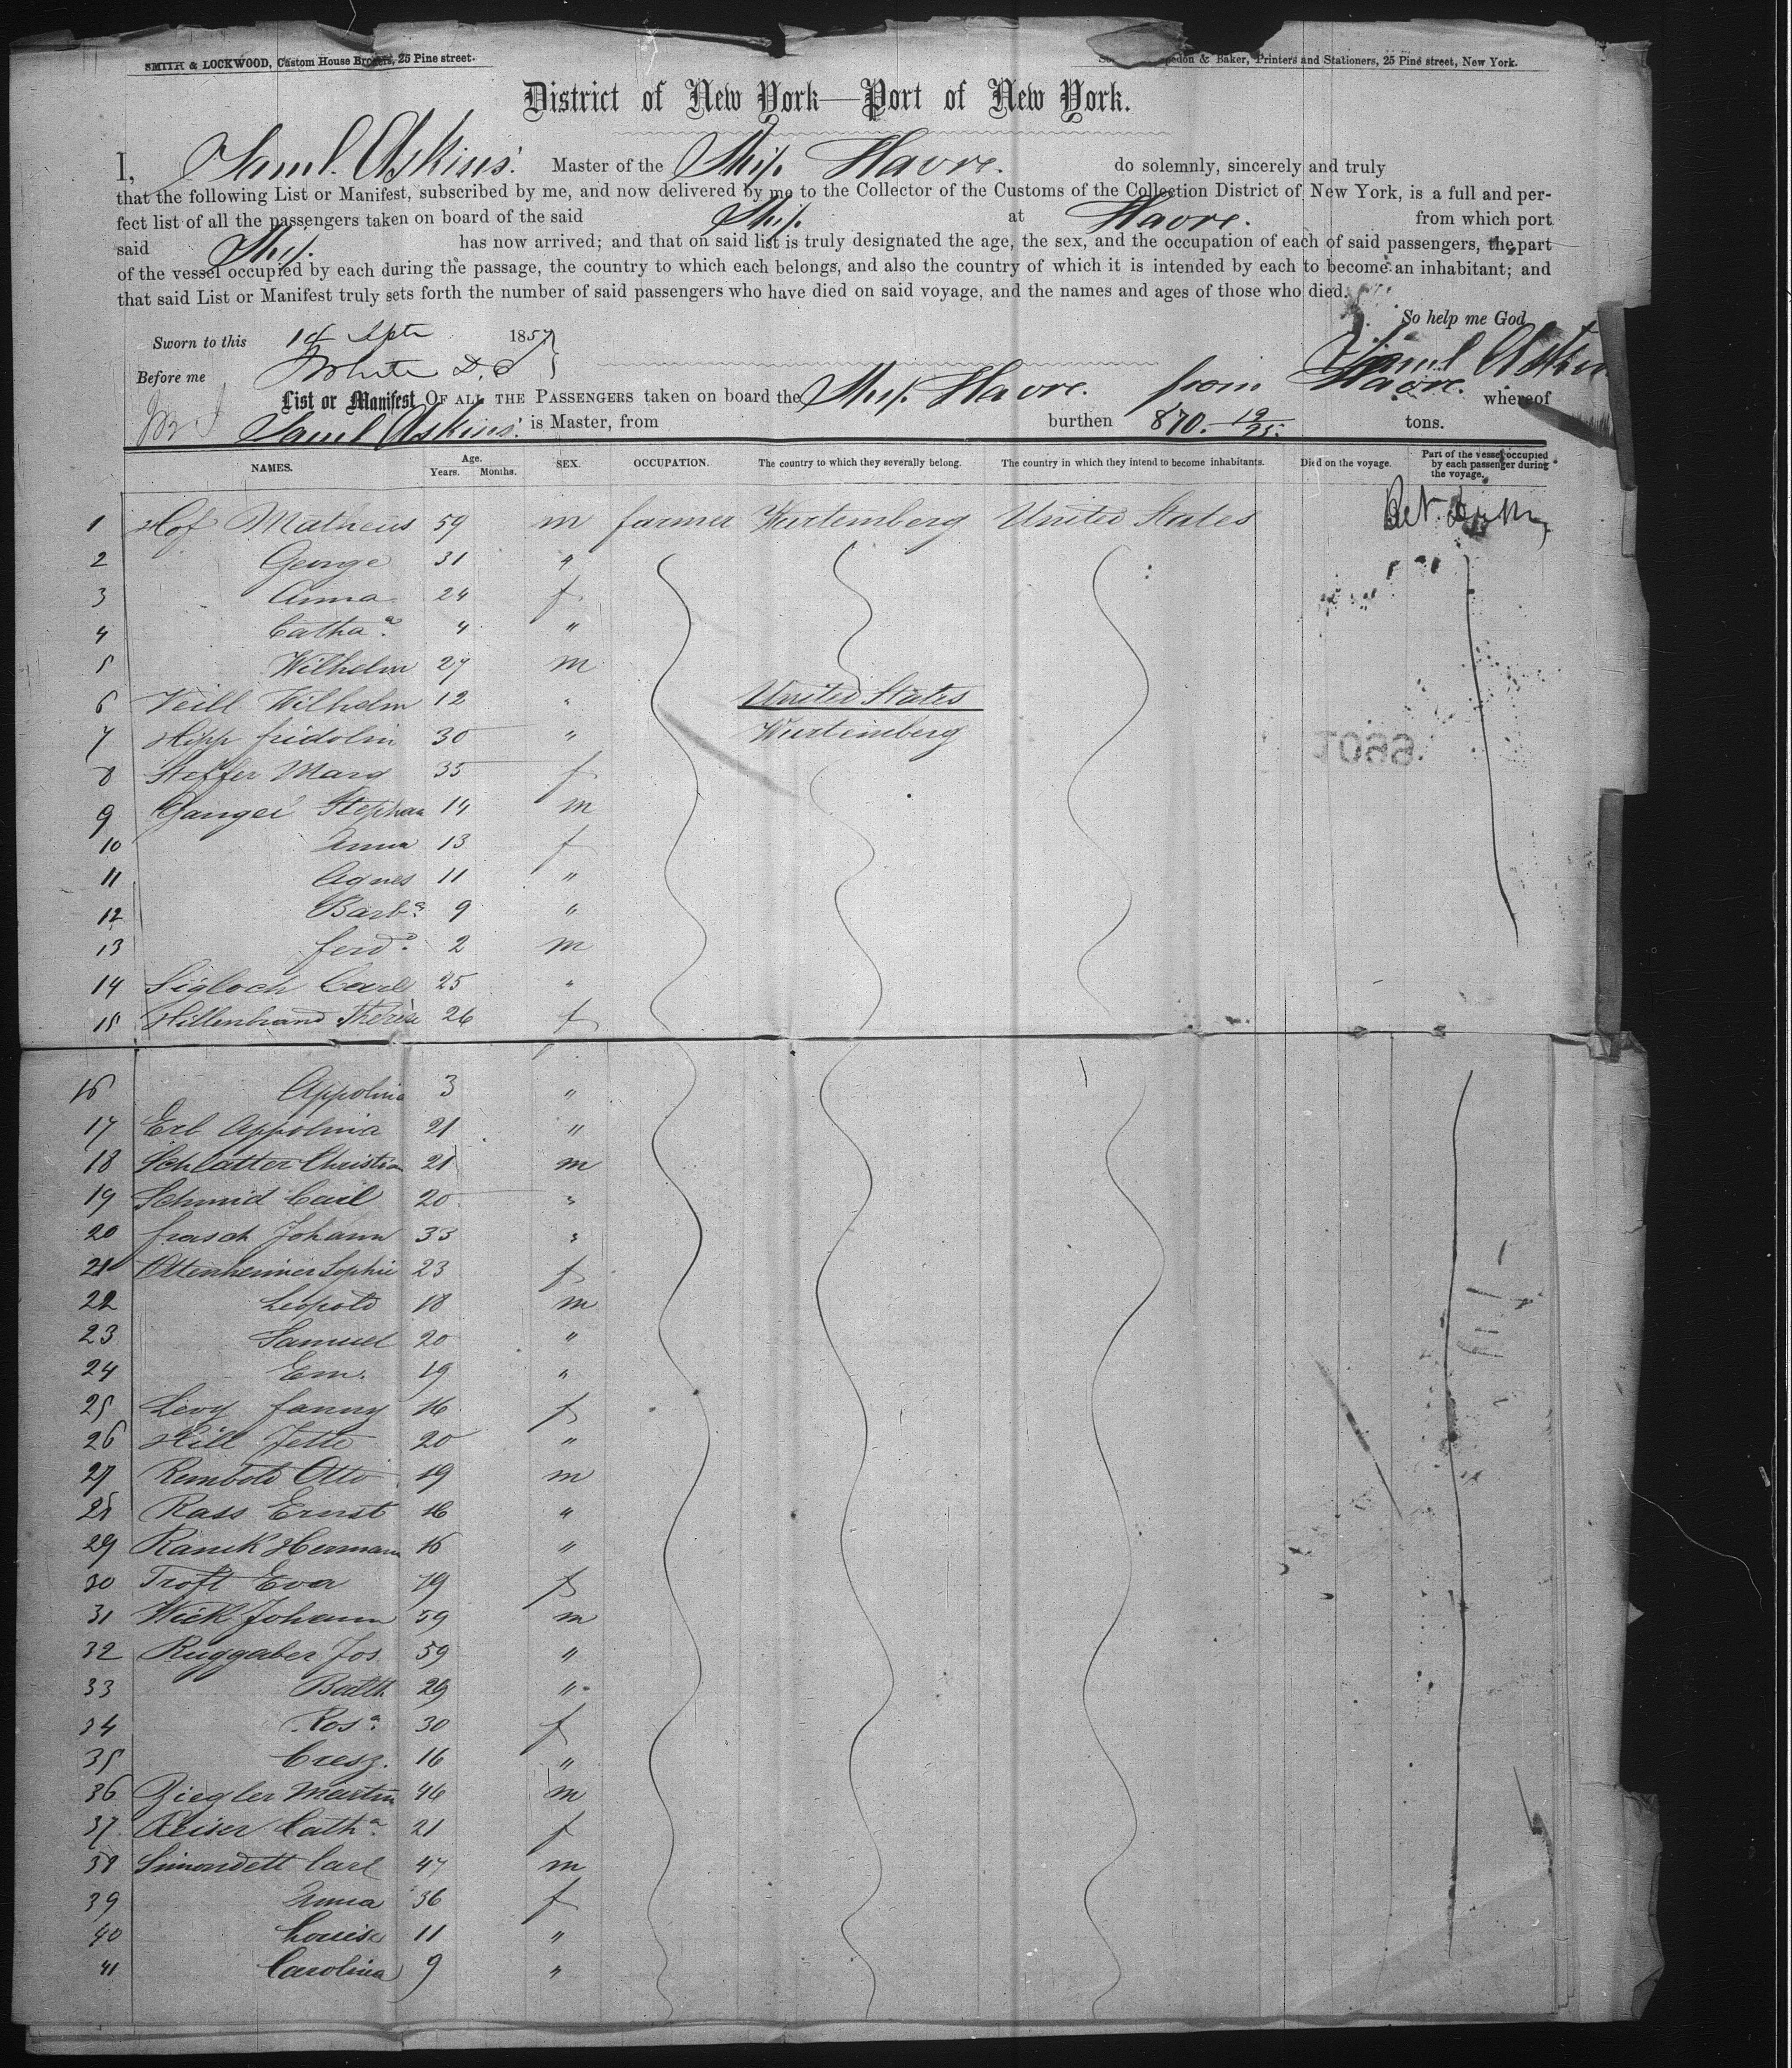 SMITH & LOCKWOOD, Custom House Brokers, 25 Pine street.
& Baker, Printers and Stationers, 25 Pine street, New York.
District of New York—Port of New York.
I, Saml. Askins. Master of the Ship Havre. do solemnly, sincerely and truly
that the following List or Manifest, subscribed by me, and now delivered by me to the Collector of the Customs of the Collection District of New York, is a full and per-
fect list of all the passengers taken on board of the said Ship. at Havre. from which port
said Ship. has now arrived; and that on said list is truly designated the age, the sex, and the occupation of each of said passengers, the part
of the vessel occupied by each during the passage, the country to which each belongs, and also the country of which it is intended by each to become an inhabitant; and
that said List or Manifest truly sets forth the number of said passengers who have died on said voyage, and the names and ages of those who died.
So help me God
Sworn to this 14 Septr 1857
Saml Askins
Before me White D.C
List or Manifest OF ALL THE PASSENGERS taken on board the Ship Havre. from Havre. whereof
Saml Askins. is Master, from burthen 870. 19/95. tons.
NAMES. Age. Years. Months. SEX. OCCUPATION. The country to which they severally belong. The country in which they intend to become inhabitants. Died on the voyage. Part of the vessel occupied by each passenger during the voyage.
1 Hof Matheus 59 m farmer Wurtemberg United States
2 George 31 "
3 Anna 24 f
4 Catha. 4 "
5 Wilhelm 27 m
6 Veill Wilhelm 12 " United States
7 Hipp fridolin 30 " Wurtemberg
8 Steffer Marg 35 f
9 Ganger Stephan 14 m
10 Anna 13 f
11 Agnes 11 "
12 Barba. 9 "
13 ferd. 2 m
14 Sigloch Carl 25 "
15 Hillenbrand Therese 26 f
16 Appolina 3 "
17 Erb Appolinia 21 "
18 Schlatter Christian 21 m
19 Schmid Carl 20 "
20 frasch Johann 33 "
21 Ottenheimer Sophie 23 f
22 Leopold 18 m
23 Samuel 20 "
24 Em. 19 "
25 Levy fanny 16 f
26 Hill Jette 20 "
27 Rembold Otto 19 m
28 Rass Ernst 16 "
29 Ranck Hermann 16 "
30 Troft Eva 19 f
31 Wick Johann 59 m
32 Ruggaber Jos 59 "
33 Balth 29 "
34 Rosa. 30 f
35 Cresz. 16 "
36 Ziegler Martin 46 m
37 Reiser Catha. 21 f
38 Simondett Carl 47 m
39 Anna 36 f
40 Louise 11 "
41 Carolina 9 "